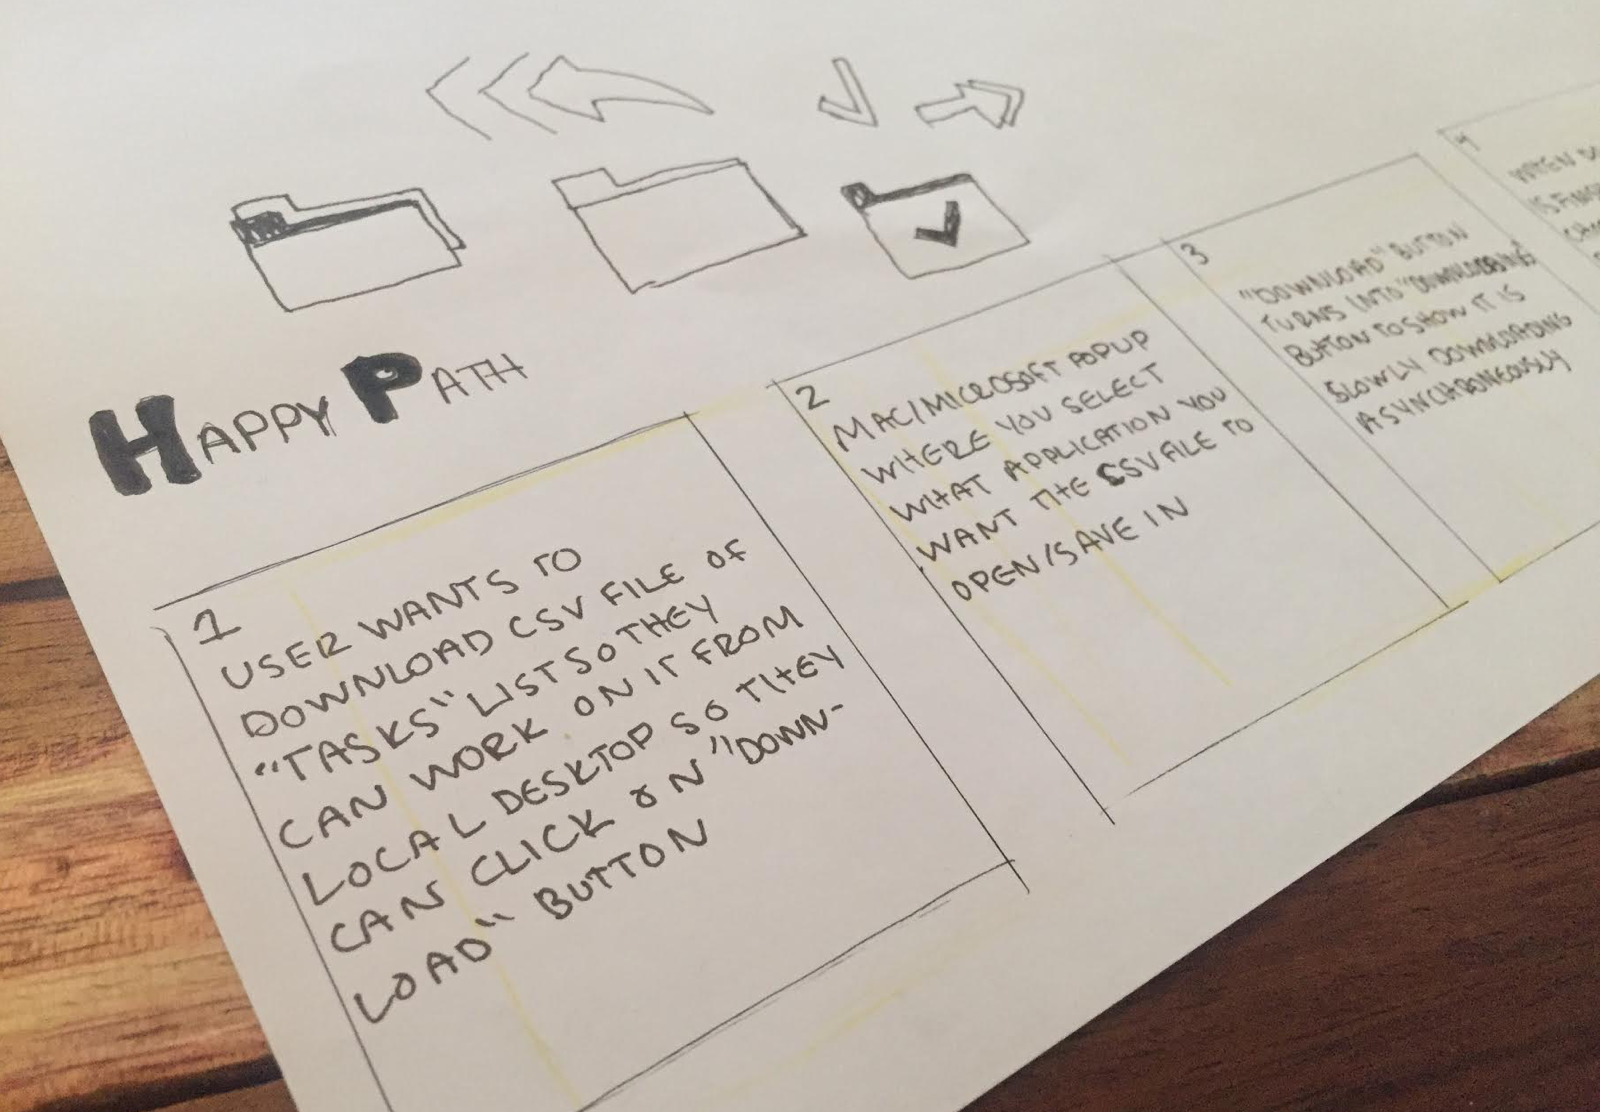 HAPPY PATH
1
USER WANTS TO
DOWNLOAD CSV FILE OF
"TASKS" LIST SO THEY
CAN WORK ON IT FROM
LOCAL DESKTOP SO THEY
CAN CLICK ON "DOWN-
LOAD" BUTTON
2
MAC/MICROSOFT POPUP
WHERE YOU SELECT
WHAT APPLICATION YOU
WANT THE CSV FILE TO
OPEN/SAVE IN
3
"DOWNLOAD" BUTTON
TURNS INTO "DOWNLOADING"
BUTTON TO SHOW IT IS
SLOWLY DOWNLOADING
ASYNCHRONEOUSLY
4
WHEN
IS